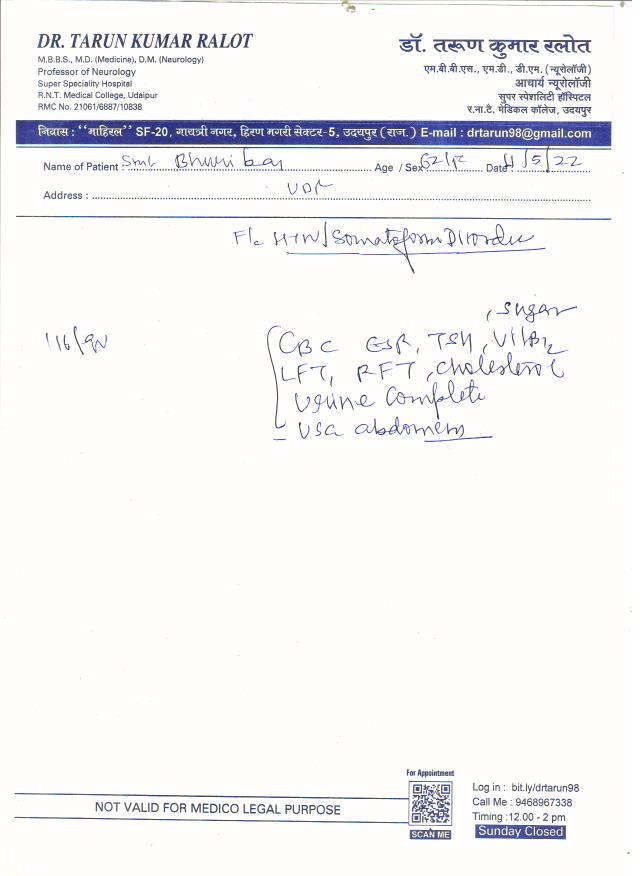 DR. TARUN KUMAR RALOT
M.B.B.S., M.D. (Medicine), D.M. (Neurology)
Professor of Neurology
Super Speciality Hospital
R.N.T. Medical College, Udaipur
RMC No. 21061/6887/10838
डॉ. तरूण कुमार रलोत
एम.बी.बी.एस., एम.डी., डी.एम. (न्यूरोलॉजी)
आचार्य न्यूरोलॉजी
सुपर स्पेशलिटी हॉस्पिटल
र.ना.टै. मेडिकल कॉलेज, उदयपुर
निवास : "माहिरल" SF-20, गायत्री नगर, हिरण मगरी सेक्टर-5, उदयपुर (राज.) E-mail : drtarun98@gmail.com
Name of Patient : Smt Bhuri bai Age / Sex 62/F Date : 11/5/22
Address : UDR
F/c HTN/Somatoform Disorder
116/90
, Sugar
CBC ESR, TSH, Vit B12
LFT, RFT, Cholesterol
Urine Complete
USG abdomen
For Appointment
SCAN ME
NOT VALID FOR MEDICO LEGAL PURPOSE
Log in : bit.ly/drtarun98
Call Me : 9468967338
Timing :12.00 - 2 pm
Sunday Closed